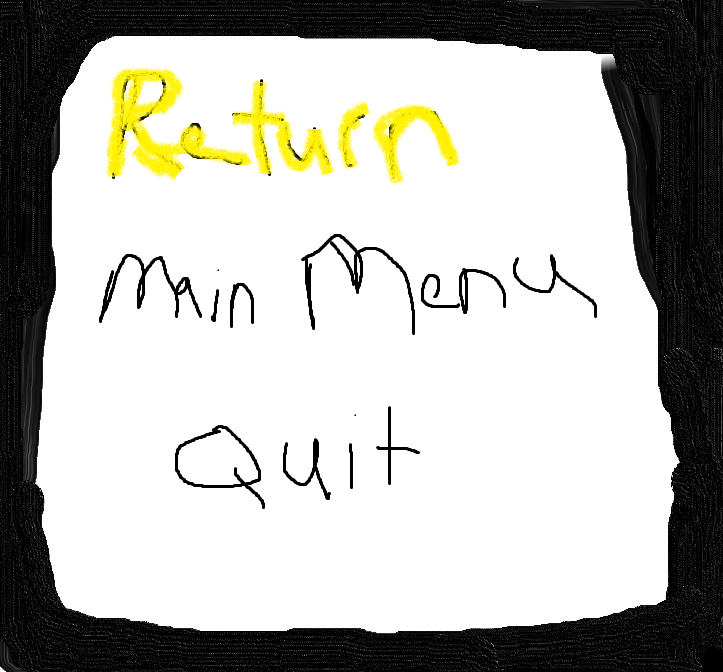 Return
Main Menu
Quit